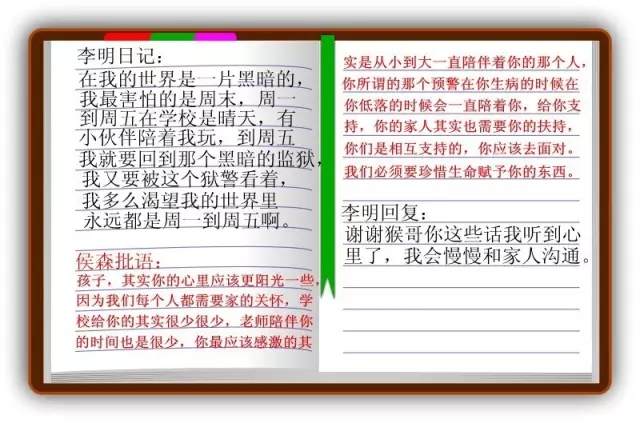 李明日记：
在我的世界是一片黑暗的，
我最害怕的是周末，周一
到周五在学校是晴天，有
小伙伴陪着我玩，到周五
我就要回到那个黑暗的监狱，
我又要被这个狱警看着，
我多么渴望我的世界里
永远都是周一到周五啊。
侯森批语：
孩子，其实你的心里应该更阳光一些，
因为我们每个人都需要家的关怀，学
校给你的其实很少很少，老师陪伴你
的时间也是很少，你最应该感激的其
实是从小到大一直陪伴着你的那个人，
你所谓的那个预警在你生病的时候在
你低落的时候会一直陪着你，给你支
持，你的家人其实也需要你的扶持，
你们是相互支持的，你应该去面对。
我们必须要珍惜生命赋予你的东西。
李明回复：
谢谢猴哥你这些话我听到心
里了，我会慢慢和家人沟通。